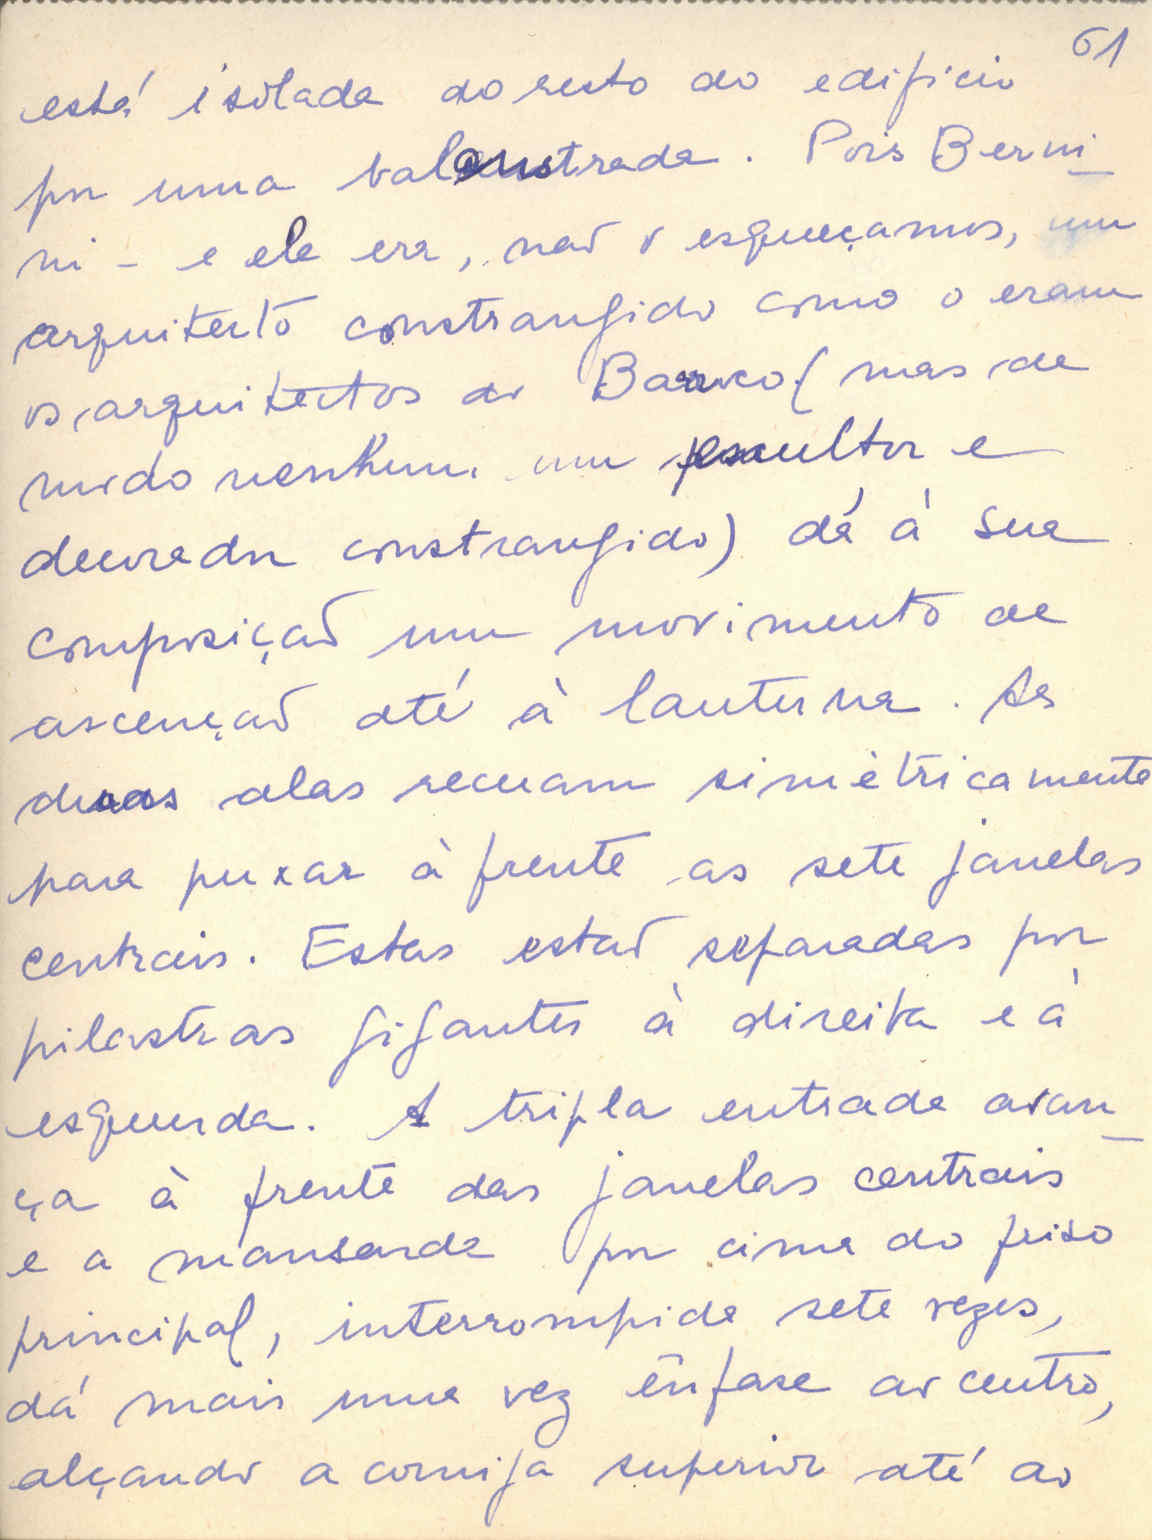 61
está isolada do resto do edificio
por uma balaustrada. Pois Berni-
ni - e ele era, não o esqueçamos, um
arquitecto constrangido como o eram
os arquitectos do Barroco (mas de
modo nenhum um escultor e
decorador constrangido) dá à sua
composição um movimento de
ascenção até à lanterna. As
duas alas recuam simètricamente
para puxar à frente as sete janelas
centrais. Estas estão separadas por
pilastras gigantes à direita e à
esquerda. A tripla entrada avan-
ça à frente das janelas centrais
e a mansarda por cima do friso
principal, interrompida sete vezes,
dá mais uma vez ênfase ao centro,
alçando a cornija superior até ao